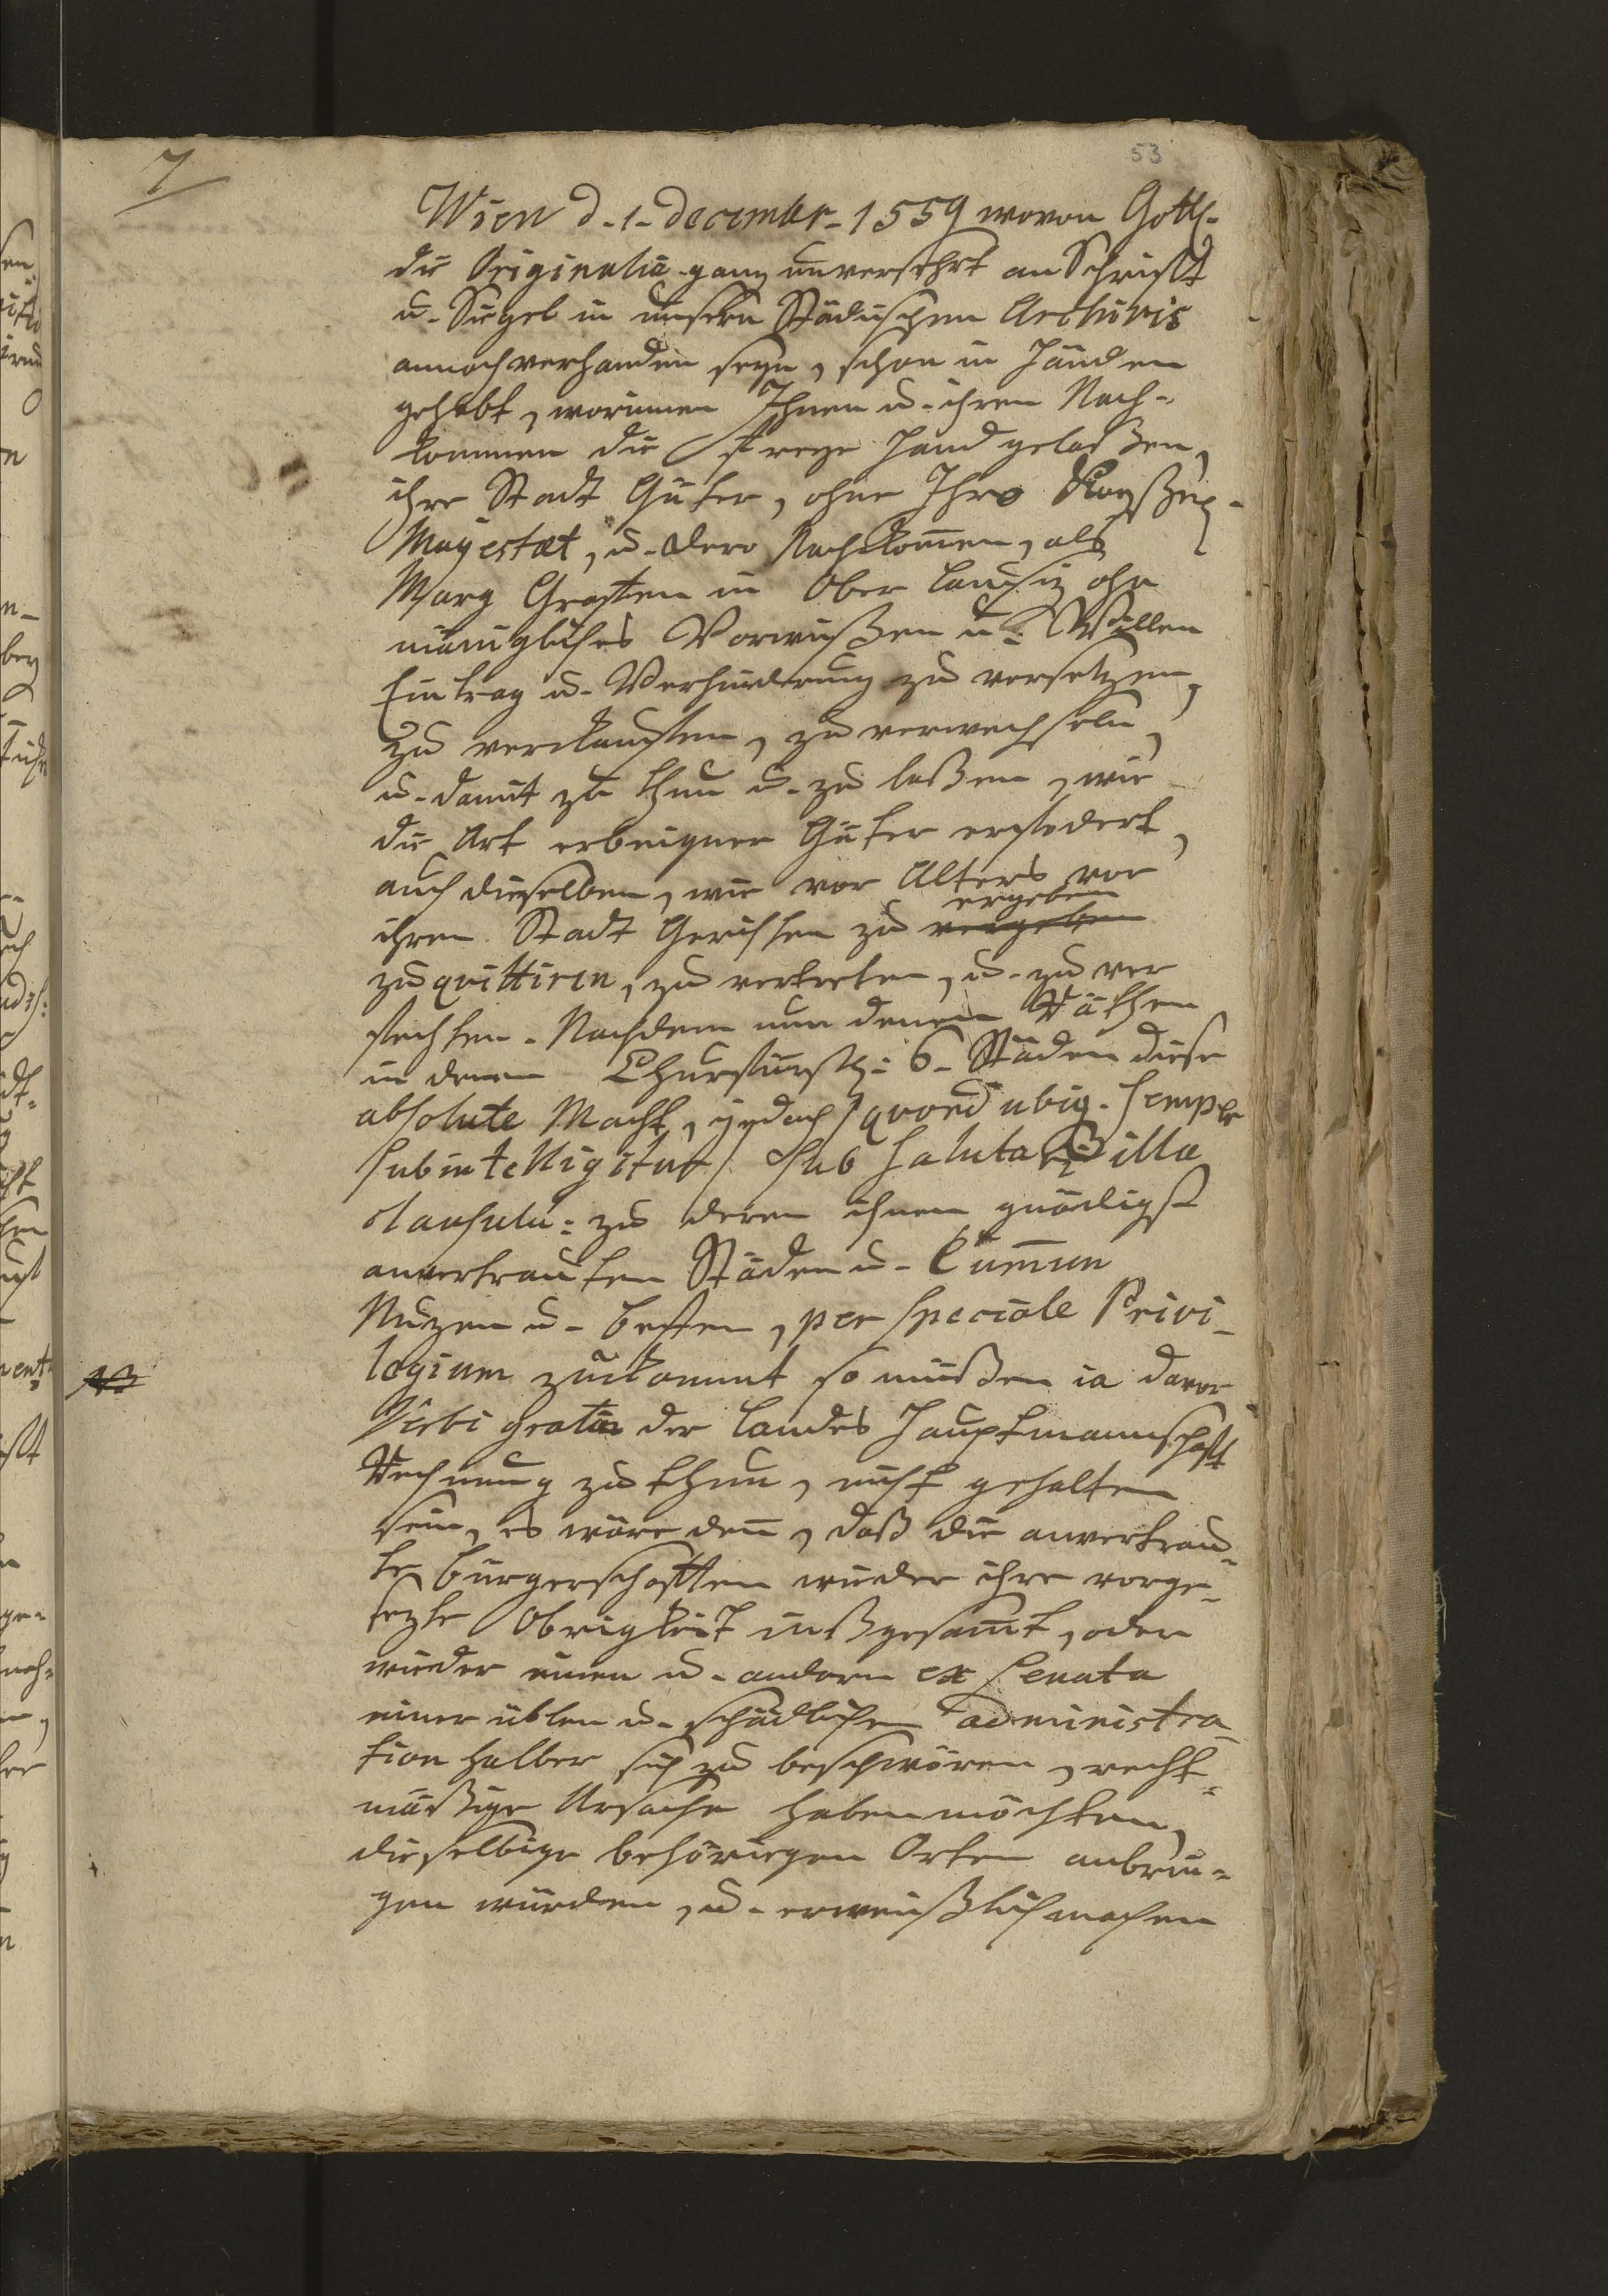 7
53
Wien d. 1. decembr. 1559 wovon Gottl.
die Originalia ganz unversehrt an Schrifft
u. Siegel in unsern Städischen Archivis
annoch verhanden seyn, schon in Händen
gehabt, worinnen Ihnen u. ihren Nach-
kommen die freye Hand gelaßen,
ihre Stadt Güter, ohne Ihro Kayßerl.
Mayestæt, u. dero Nachkom̄en, als
Marg Graffen in Ober Lausiz ohn
männigliches Vorwißen u. Willen
Eintrag u. Verhinderung zu versetzen,
zu verckauffen, zu verwechseln,
u. damit zu thun u. zu laßen, wie
die Art erbeigner Güter erfodert,
auch dieselben, wie vor Alters vor
ergeben
ihren Stadt Gerichten zu vergeben
zu quittiren, zu vertreten, u. zu ver
fechten. Nachdem nun denen Räthen
in denen Churfürstl: 6. Städen diese
absolute Macht, jedoch / quod ubiq. semper
subintelligitur / sub salutari illa
clausula: zu deren ihnen gnädigst
anvertrauten Städen u. Com̄un
Nuzen u. besten, per speciale Privi-
legium zuckommt so müßen ia davor
NB
Verbi gratia der Landes Hauptmannschafft
Rechnung zu thun, nicht gehalten
sein, es wäre den̄, daß die anvertrau-
te Bürgerschafften wieder ihre vorge-
sezte Obrigkeit inßgesam̄t, oder
wieder einen u. andern ex Senatu
einer üblen u. schädlichen administra-
tion halber sich zu beschwören, recht-
mäßige Ursache haben möchten,
dieselbige behörigen Orten anbrin-
gen würden, u. erweißlich machen